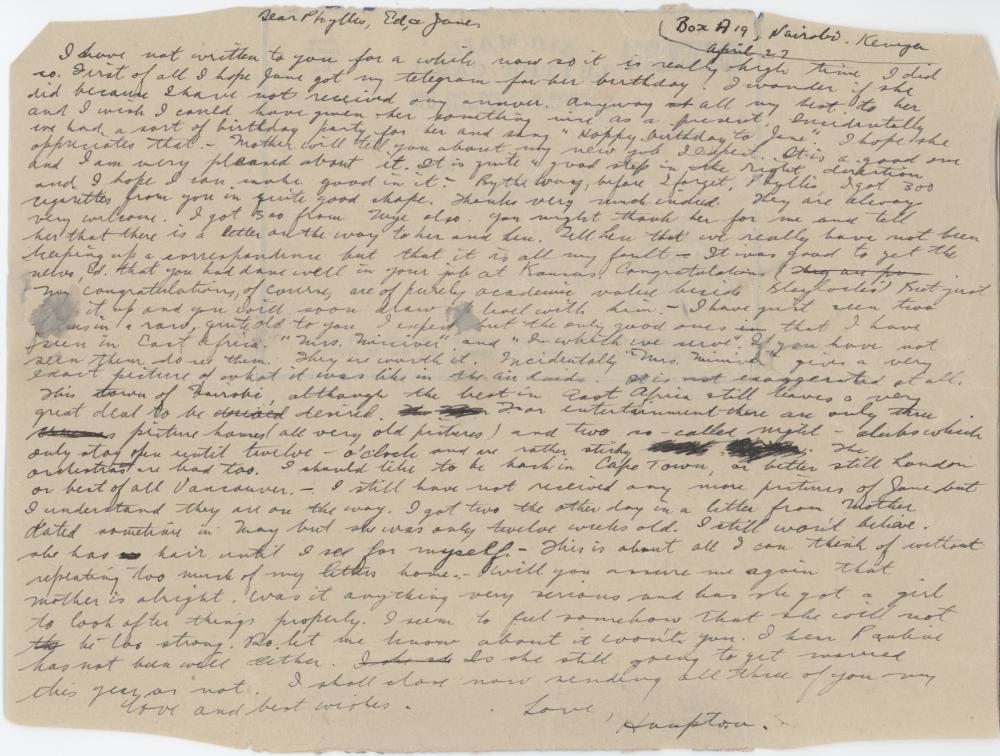 Dear Phyllis, Ed, & Jane,
Box A 19, Nairobi. Kenya
April 27
I have not written to you for a while now so it is really high time I did
so. First of all I hope Jane got my telegram for her birthday. I wonder if she
did because I have not received any answer. Anyway all my best to her
and I wish I could have given her something nice as a present. Incidentally
we had a sort of birthday party for her and sang "Happy birthday to Jane". I hope she
appreciates that. – Mother will tell you about my new job I expect. It is a good one
and I am very pleased about it. It is quite a good step in the right direction
and I hope I can make good in it. – By the way, before I forget, Phyllis, I got 300
cigarettes from you in quite good shape. Thanks very much indeed. They are always
very welcome. I got 300 from also. You might thank her for me and tell
her that there is a letter on the way to her and Len. Tell Len that we really have not been
keeping up a correspondence but that it is all my fault – It was good to get the
news, Ed, that you had done well in your job at Kansas. Congratulations!
My congratulations, of course, are of purely academic value beside But just
it up and you will soon draw level with him. – I have just seen two
in a row, quite old to you I expect but the only good ones that I have
seen in East Africa. "Mrs. Miniver" and "In which we serve". If you have not
seen them do see them. They are worth it. Incidentally "Mrs. Miniver" gives a very
exact picture of what it was like in the air raids. It is not exaggerated at all.
This town of Nairobi, although the best in East Africa still leaves a very
great deal to be desired. For entertainment there are only three
picture homes (all very old pictures) and two so-called night-clubs which
only stay open until twelve-o'clock and are rather sticky. The
orchestras are bad too. I should like to be back in Cape Town, or better still London
or best of all Vancouver. – I still have not received any more pictures of Jane but
I understand they are on the way. I got two the other day in a letter from Mother
dated sometime in May but she was only twelve weeks old. I still won't believe
she has hair until I see for myself. – This is about all I can think of without
repeating too much of my letters home. – Will you assure me again that
mother is alright. Was it anything very serious and has she got a girl
to look after things properly. I seem to feel somehow that she will not
be too strong. Do let me know about it won't you. I hear Pauline
has not been well either. Is she still going to get married
this year or not. I shall close now sending all three of you my
love and best wishes.
Love,
Hampton.